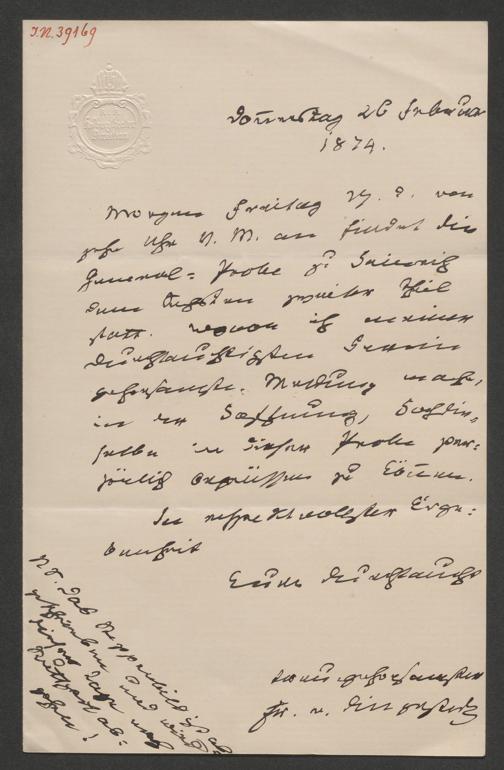 I.N. 39169
Donnerstag 26 Februar
1874.
Morgen Freitag 27. d. von
zehn Uhr V. M. an findet die
General-Probe zu Heinrich
dem Sechsten zweiter Theil
statt. wovon ich meiner
durchlauchtigsten Herrin
gehorsamste Meldung mache,
in der Hoffnung, Hochdie-
selbe in dieser Probe per-
sönlich begrüssen zu können.
In respektvollster Erge-
benheit
Eurer Durchlaucht
treugehorsamster
Fr. v. Dingelstedt
NB. Das
geschrieben und wird
dieser Tage nach
ab-
gehen!